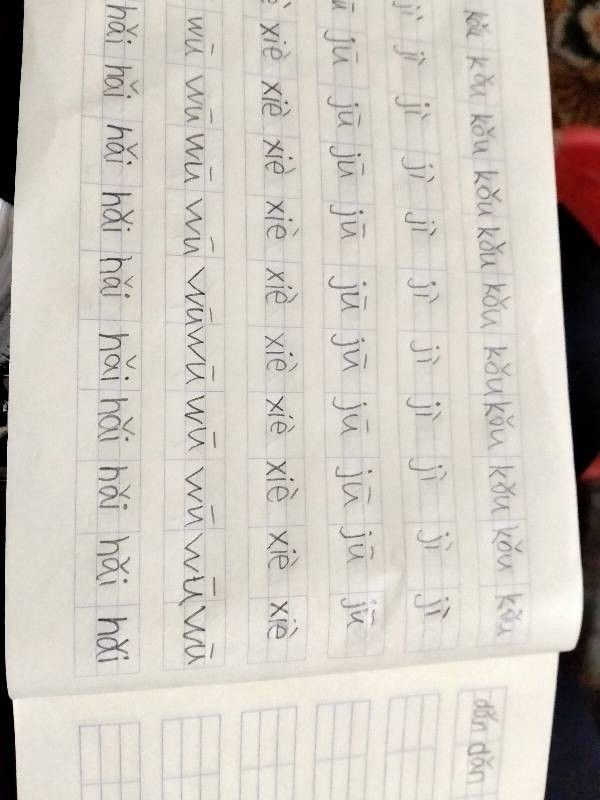 kǒu kǒu kǒu kǒu kǒu kǒu kǒu kǒu kǒu kǒu kǒu
jì jì jì jì jì jì jì jì jì jì jì
jū jū jū jū jū jū jū jū jū jū
xiè xiè xiè xiè xiè xiè xiè xiè xiè xiè
wū wū wū wū wū wū wū wū wū wū
hǎi hǎi hǎi hǎi hǎi hǎi hǎi hǎi hǎi hǎi
dǎn dǎn